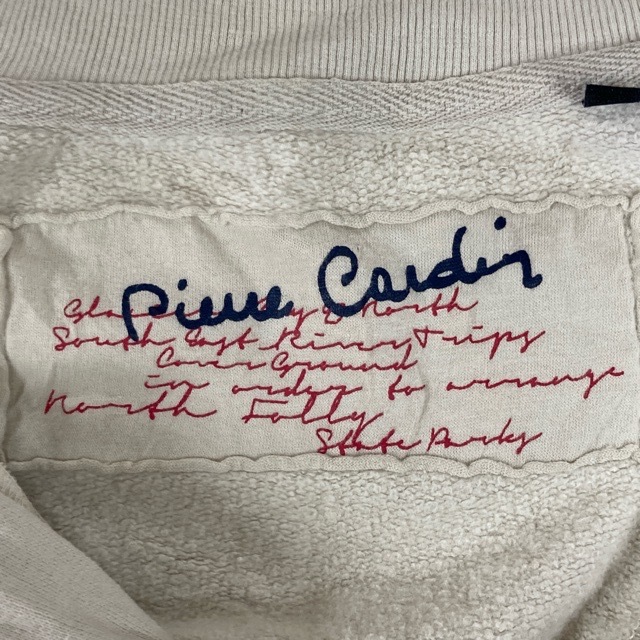 Pierre Cardin
North
South East River Trips
Cover Ground
in order to arrange
North Folly
State Parks